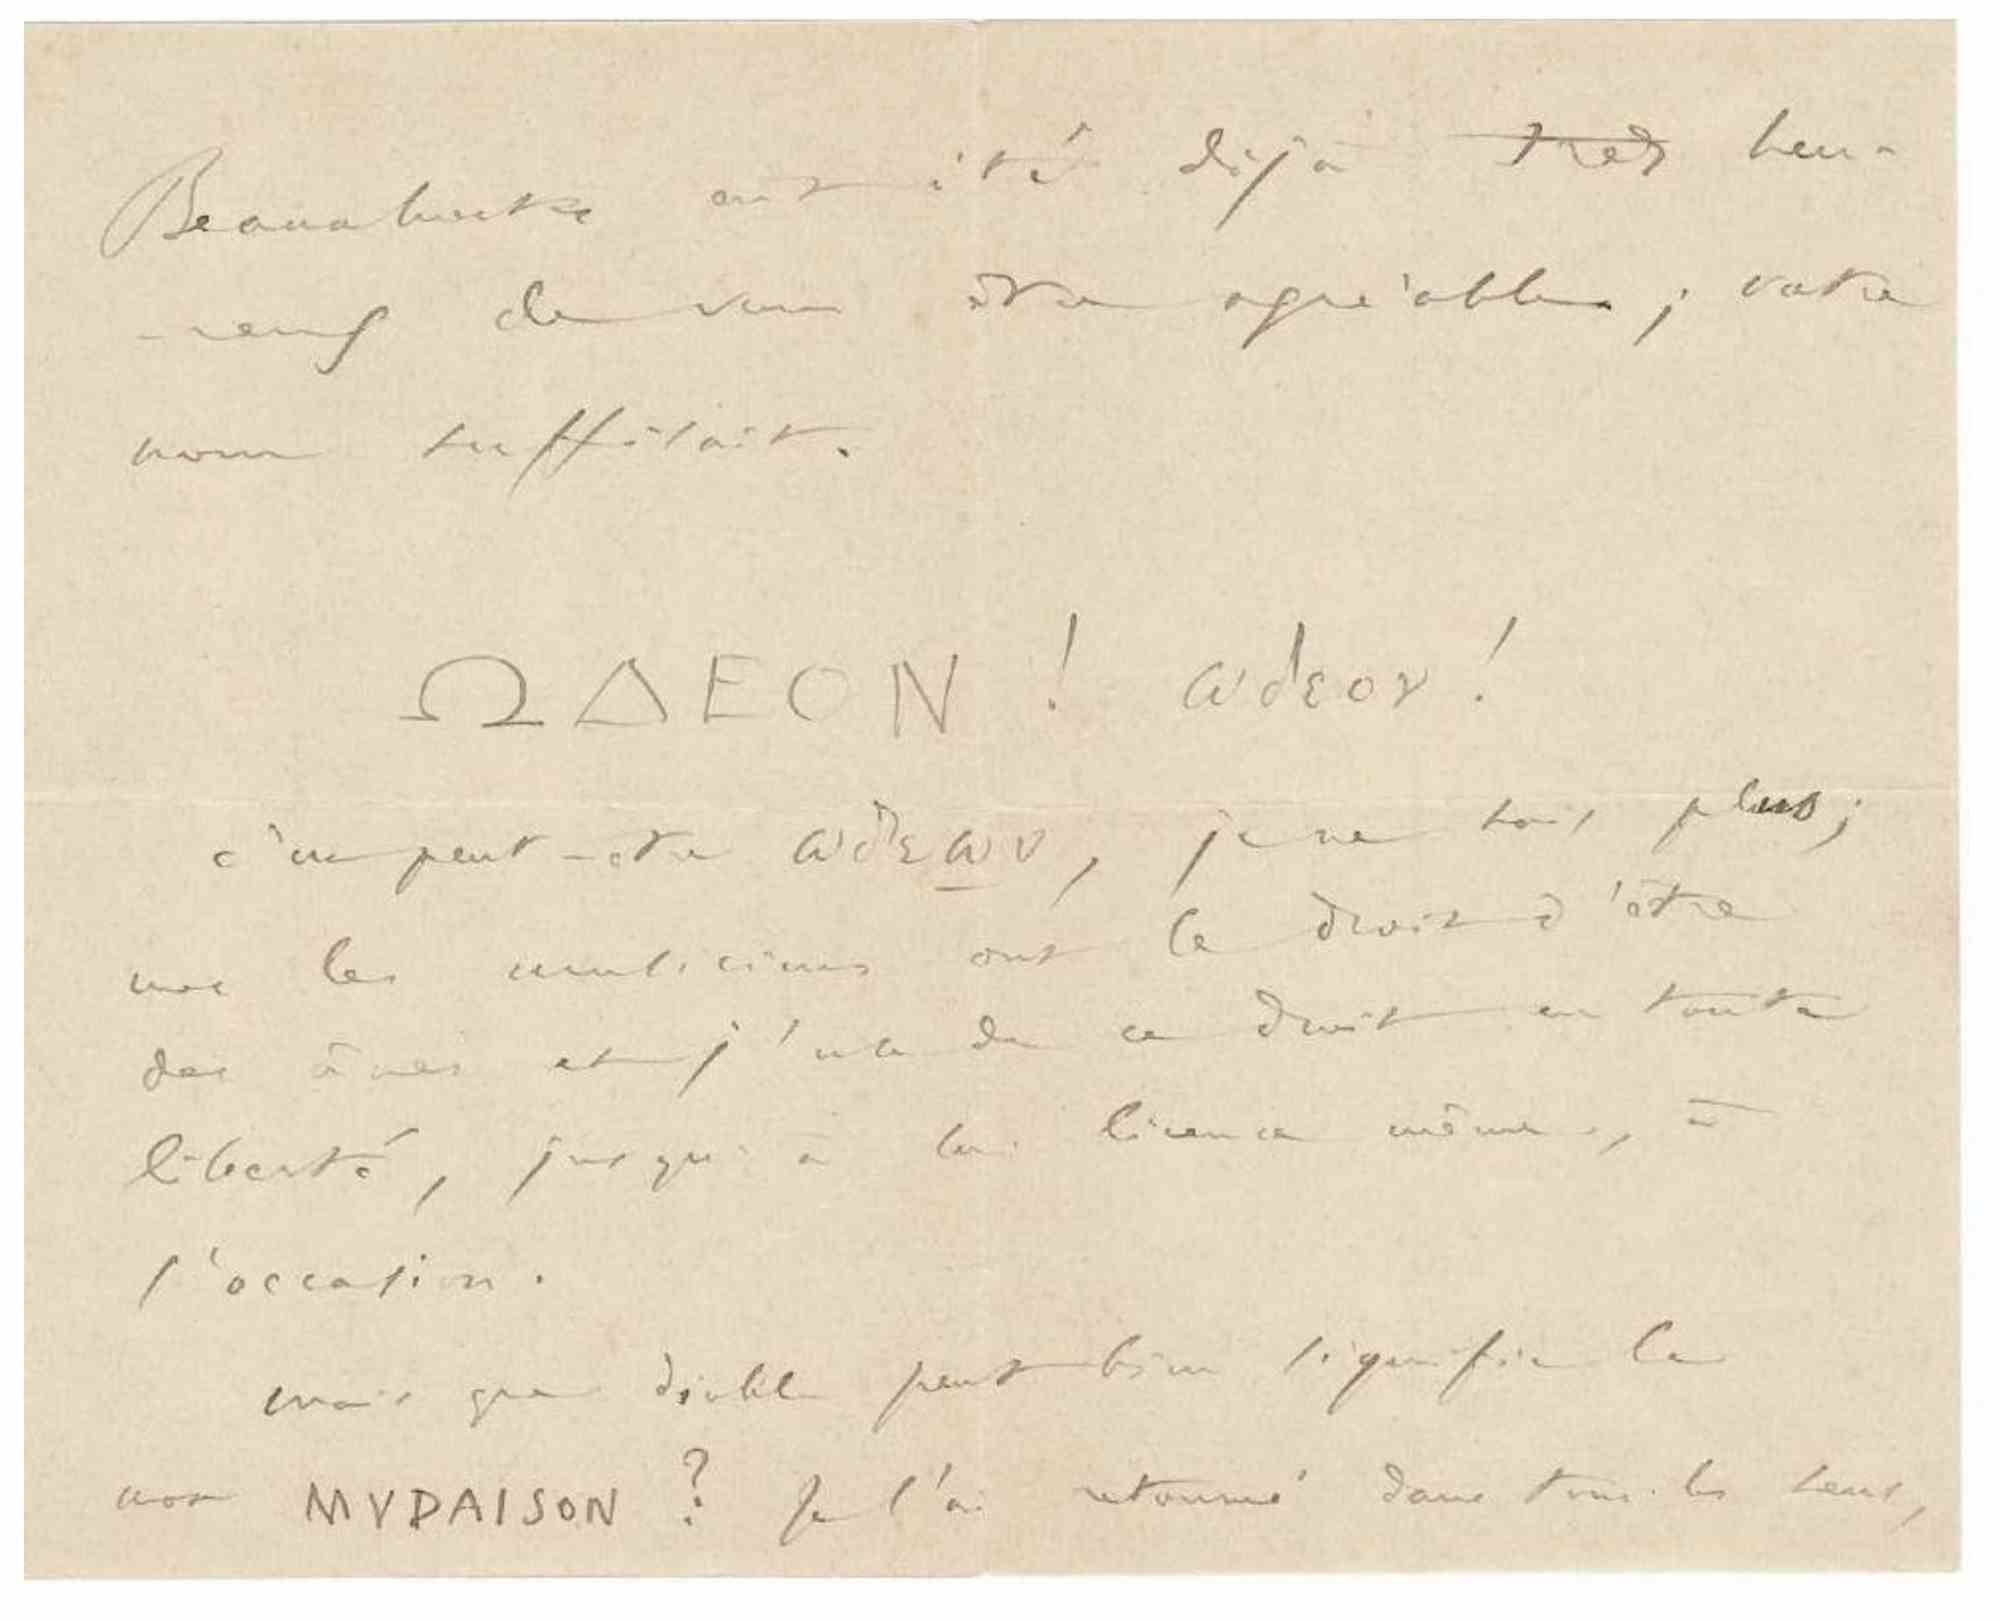 ont été déjà ~~très~~ heu-
-reux de vous être agréables ; votre
nom suffisait.
ΩΔΕΟΝ ! ωδεον !
c'est peut-être ωδεων, je ne sais plus ;
mais les musiciens ont le droit d'être
des ânes et j'use de ce droit en toute
liberté, jusqu'à la licence même, à
l'occasion.
mais que diable peut bien signifier le
mot MVDAISON ? Je l'ai retourné dans tous les sens,